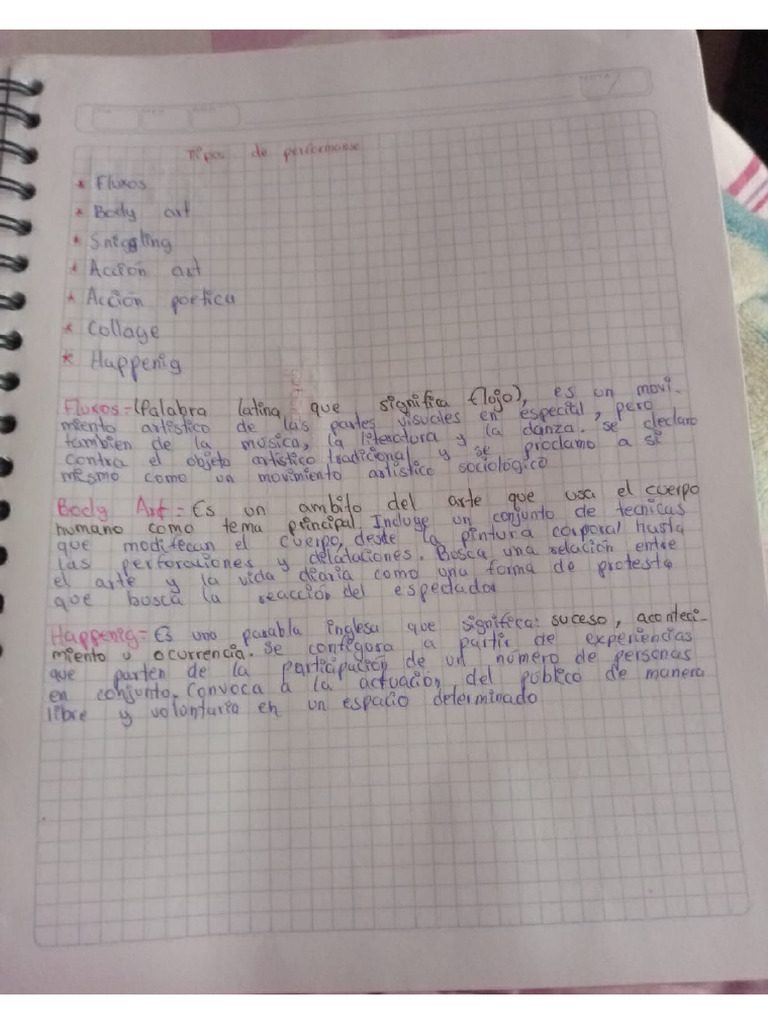 Tipos de performanse
* Fluxos
* Body art
* Sniggling
* Acción art
* Acción poetica
* Collage
* Happenig
Fluxos = (Palabra latina que significa flojo), es un movi-
miento artistico de las partes visuales en especital, pero
tambien de la musica, la literatura y la danza. se declaro
contra el objeto artistico tradicional y se proclamo a si
mismo como un movimiento artistico sociológico
Body Art = Es un ambito del arte que usa el cuerpo
humano como tema principal. Incluye un conjunto de tecnicas
que modifecan el cuerpo, deste la pintura corporal hasta
las perforaciones y delataciones. Busca una relación entre
el arte y la vida diaria como una forma de protesta
que busca la reacción del espectador
Happenig = Es una parabla inglesa que significa: suceso, aconteci-
miento u ocurrencia. Se configora a partir de experiencias
que parten de la participación de un número de personas
en conjunto. Convoca a la actuación del público de manera
libre y voluntaria en un espacio determinado